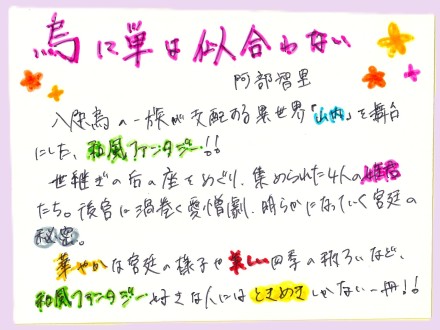 烏に単は似合わない
阿部智里
八咫烏の一族が支配する異世界「山内」を舞台
にした、和風ファンタジー!!
世継ぎの后の座をめぐり、集められた4人の姫君
たち。後宮に渦巻く愛憎劇、明らかになっていく宮廷の
秘密。
華やかな宮廷の様子や美しい四季の移ろいなど、
和風ファンタジー好きな人にはときめきしかない一冊!!